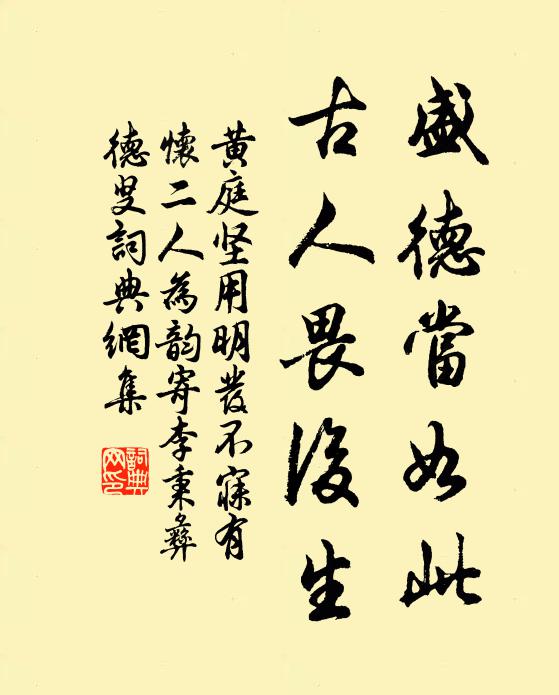 盛德當如此
古人畏後生
黄庭坚用明發不寐有
懷二人為韵寄李秉彝
德叟詞典網集
詞典
网印